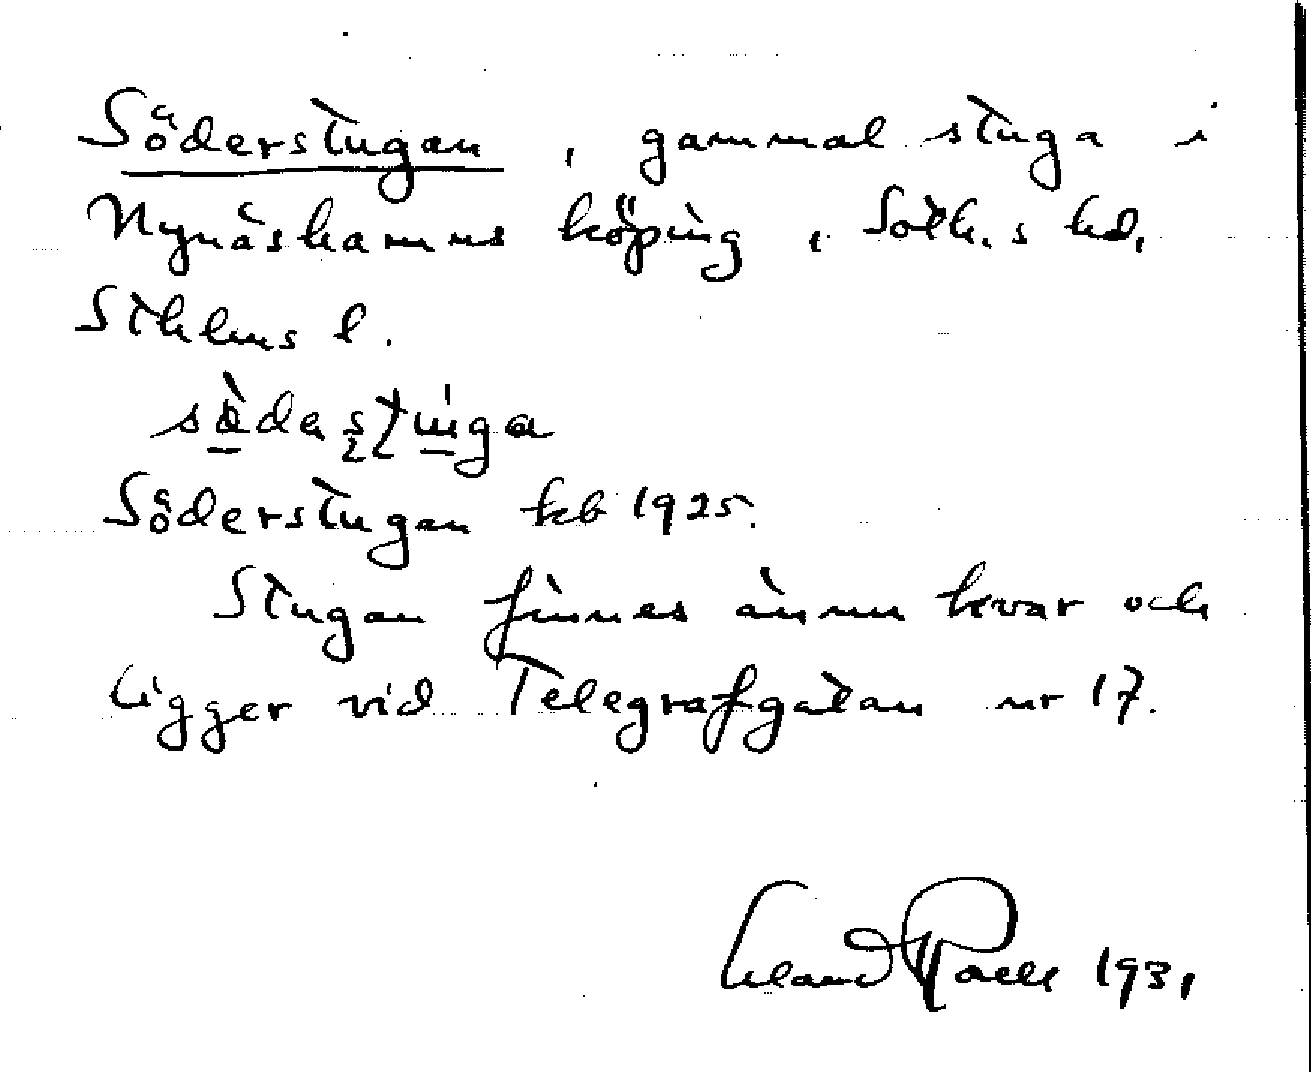 Söderstugan, gammal stuga i
Nynäshamns köping, Soth.s hd,
Sthlms l.
Söderstugan kb 1925.
Stugan finnes ännu kvar och
ligger vid Telegrafgatan nr 17.
1931